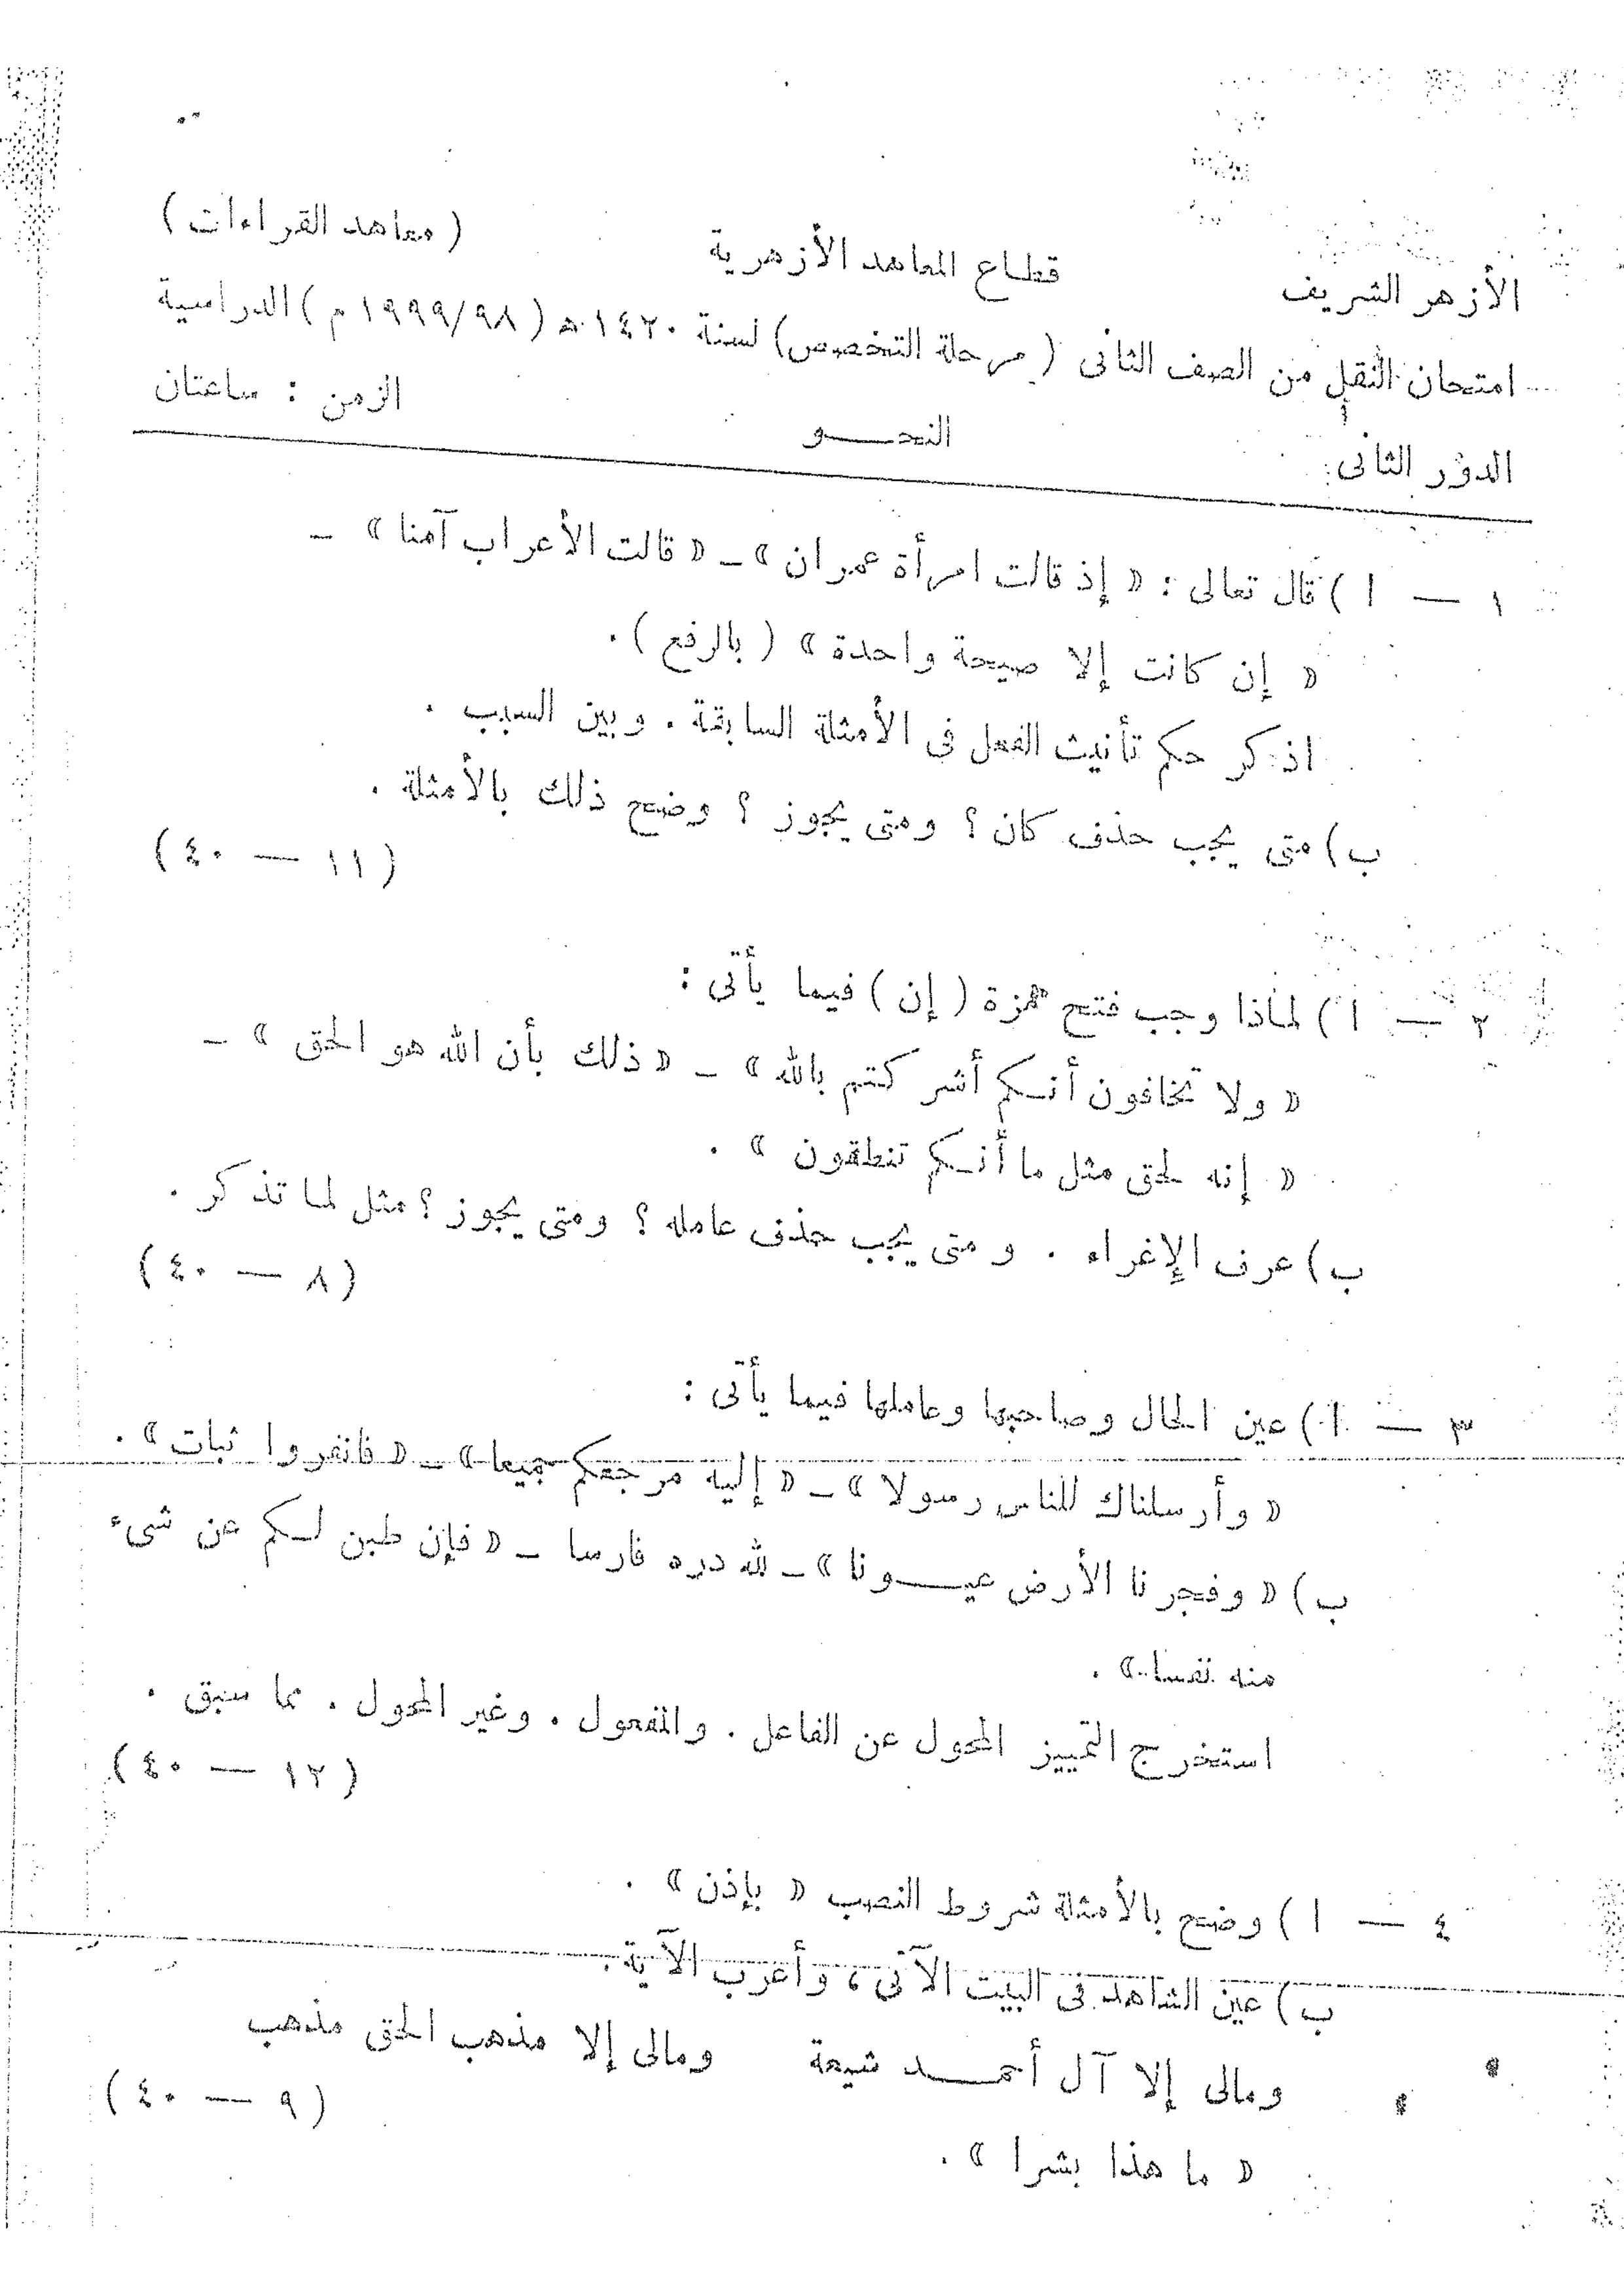 ( معاهد القراءات )
قطاع المعاهد الأزهرية
الأزهر الشريف
امتحان النقل من الصف الثانى ( مرحلة التخصص ) لسنة ١٤٢٠ هـ ( ١٩٩٩/٩٨ م ) الدراسية
الدور الثانى
النحــــو
الزمن : ساعتان
١ — ا ) قال تعالى : « إذ قالت امرأة عمران » ـ « قالت الأعراب آمنا » ـ
« إن كانت إلا صيحة واحدة » ( بالرفع ) .
اذكر حكم تأنيث الفعل فى الأمثلة السابقة . وبين السبب .
ب ) متى يجب حذف كان ؟ ومتى يجوز ؟ وضح ذلك بالأمثلة .
( ١١ — ٤٠ )
٢ — ا ) لماذا وجب فتح همزة ( إن ) فيما يأتى :
« ولا تخافون أنكم أشركتم بالله » ـ « ذلك بأن الله هو الحق » ـ
« إنه لحق مثل ما أنكم تنطقون » .
ب ) عرف الإغراء . ومتى يجب حذف عامله ؟ ومتى يجوز ؟ مثل لما تذكر .
( ٨ — ٤٠ )
٣ — ا ) عين الحال وصاحبها وعاملها فيما يأتى :
« وأرسلناك للناس رسولا » ـ « إليه مرجعكم جميعا » ـ « فانفروا ثبات » .
ب ) « وفجرنا الأرض عيــــونا » ـ لله دره فارسا ـ « فإن طبن لكم عن شىء
منه نفسا » .
استخرج التمييز المحول عن الفاعل . والمفعول . وغير المحول . مما سبق .
( ١٢ — ٤٠ )
٤ — ا ) وضح بالأمثلة شروط النصب « بإذن » .
ب ) عين الشاهد فى البيت الآتى ، وأعرب الآية .
ومالى إلا آل أحمــــد شيعة ومالى إلا مذهب الحق مذهب
( ٩ — ٤٠ )
« ما هذا بشرا » .